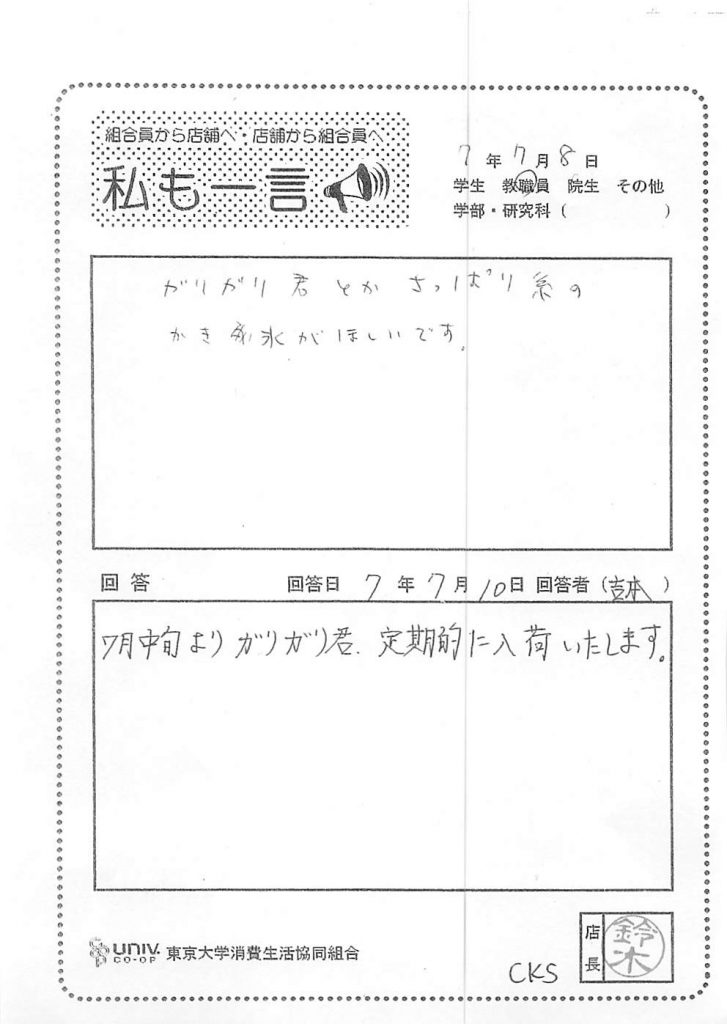 組合員から店舗へ・店舗から組合員へ
私も一言
7年7月8日
学生 教職員 院生 その他
学部・研究科( )
ガリガリ君とかさっぱり系の
かき氷がほしいです。
回答 回答日 7年7月10日 回答者(吉本)
7月中旬よりガリガリ君、定期的に入荷いたします。
UNIV. CO-OP 東京大学消費生活協同組合
CKS
店長 鈴木